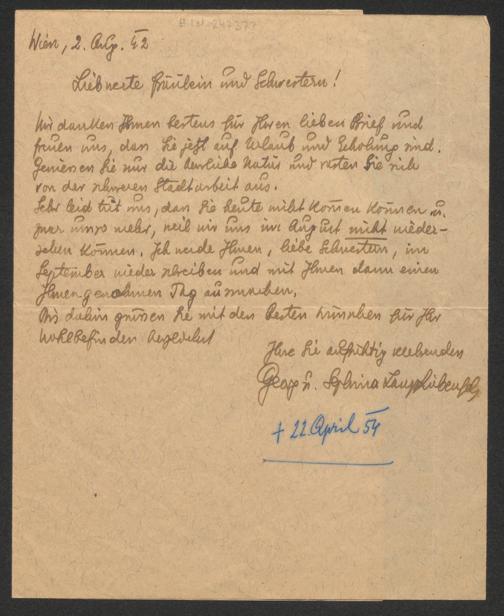 Wien, 2. Aug. 42
Liebwerte Fräulein und Schwestern!
Wir danken Ihnen bestens für Ihren lieben Brief und
freuen uns, dass Sie jetzt auf Urlaub und Erholung sind.
Geniessen Sie nur die herrliche Natur und rasten Sie sich
von der schweren Stadtarbeit aus.
Sehr leid tut uns, dass Sie heute nicht kommen können u.
zwar umso mehr, weil wir uns im August nicht wieder-
sehen können. Ich werde Ihnen, liebe Schwestern, im
September wieder schreiben und mit Ihnen dann einen
Ihnen genehmen Tag ausmachen.
Bis dahin grüssen Sie mit den besten Wünschen für Ihr
Wohlbefinden herzlichst
Ihre Sie aufrichtig
Georg u.
+ 22. April 54